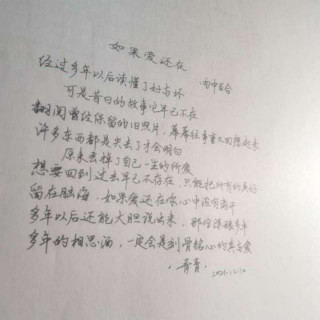 如果爱还在
雨中百合
经过多年以后读懂了好与坏
可是昔日的故事已早已不在
翻阅曾经保留的旧照片，幕幕往事重又回想起来
许多东西都是失去了才会明白
原来丢掉了自己一生的所爱
想要回到过去早已不存在，只能把所有的美好
留在脑海，如果爱还在你心中没有离开
多年以后还能大胆说出来，那份深藏多年
多年的相思酒，一定会是刻骨铭心的真与爱
青青